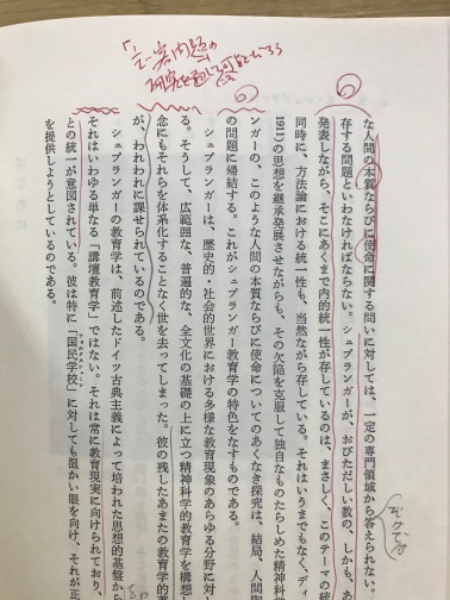 な人間の本質ならびに使命に関する問いに対しては、一定の専門領域から答えられない。
存する問題といわなければならない。シュプランガーが、おびただしい数の、しかも、あ
発表しながら、そこにあくまで内的統一性が存しているのは、まさしく、このテーマの統
同時に、方法論における統一性も、当然ながら存している。それはいうまでもなく、ディ
1911)の思想を継承発展させながらも、その欠陥を克服して独自なものたらしめた精神科学
ンガーの、このような人間の本質ならびに使命についてのあくなき探究は、結局、人間
の問題に帰結する。これがシュプランガー教育学の特色をなすものである。
シュプランガーは、歴史的・社会的世界における多様な教育現象のあらゆる分野に対
る。そうして、広範囲な、普遍的な、全文化の基礎の上に立つ精神科学的教育学を構想
念にもそれらを体系化することなく世を去ってしまった。彼の残したあまたの教育学的
が、われわれに課せられているのである。
シュプランガーの教育学は、前述したドイツ古典主義によって培われた思想的基盤か
それはいわゆる単なる「講壇教育学」ではない。それは常に教育現実に向けられており、
との統一が意図されている。彼は特に「国民学校」に対しても温かい眼を向け、それが正
を提供しようとしているのである。